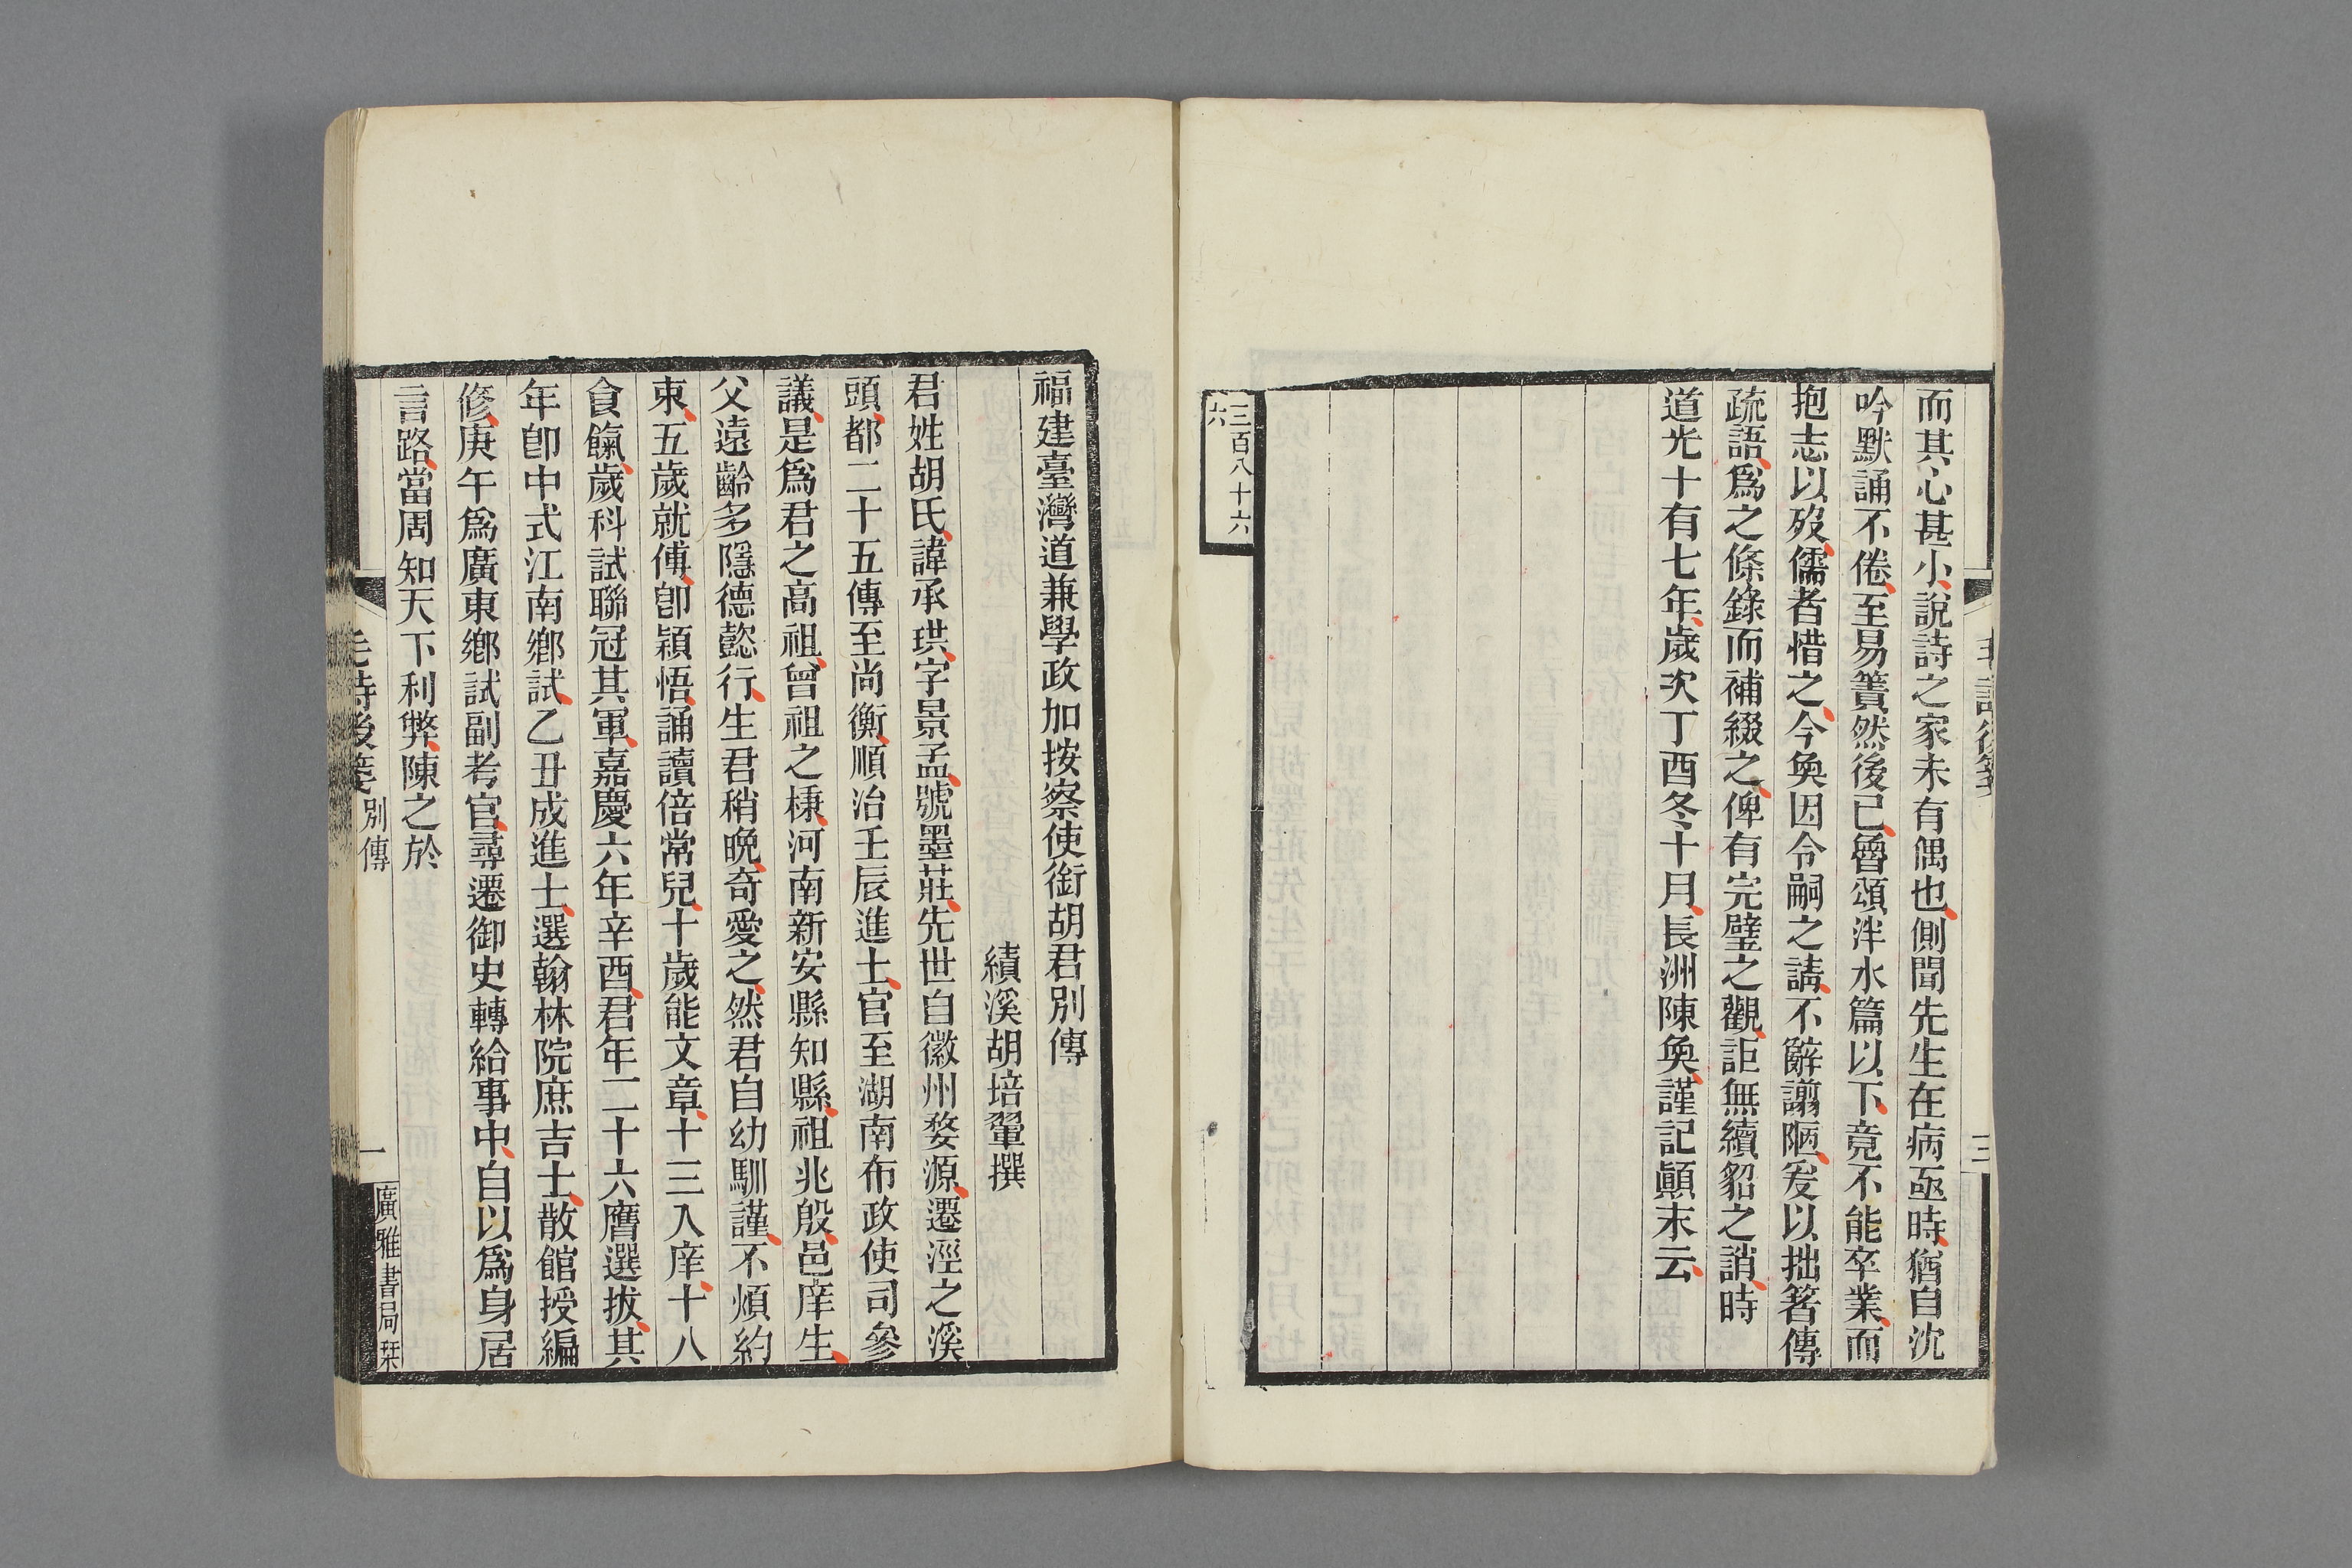 而其心甚小說詩之家未有偶也側聞先生在病亟時猶自沈
吟默誦不倦至易簀然後已魯頌泮水篇以下竟不能卒業而
抱志以歿儒者惜之今奐因令嗣之請不辭譾陋爰以拙箸傳
疏語爲之條錄而補綴之俾有完璧之觀詎無續貂之誚時
道光十有七年歲次丁酉冬十月長洲陳奐謹記顚末云
三百八十六
六
福建臺灣道兼學政加按察使銜胡君別傳
績溪胡培翬撰
君姓胡氏諱承珙字景孟號墨莊先世自徽州婺源遷涇之溪
頭都二十五傳至尚衡順治壬辰進士官至湖南布政使司參
議是爲君之高祖曾祖之棟河南新安縣知縣祖兆殷邑庠生
父遠齡多隱德懿行生君稍晩奇愛之然君自幼馴謹不煩約
束五歲就傅卽穎悟誦讀倍常兒十歲能文章十三入庠十八
食餼歲科試聯冠其軍嘉慶六年辛酉君年二十六膺選拔其
年卽中式江南鄉試乙丑成進士選翰林院庶吉士散館授編
修庚午爲廣東鄉試副考官尋遷御史轉給事中自以爲身居
言路當周知天下利弊陳之於
毛詩後箋 別傳
一
廣雅書局栞